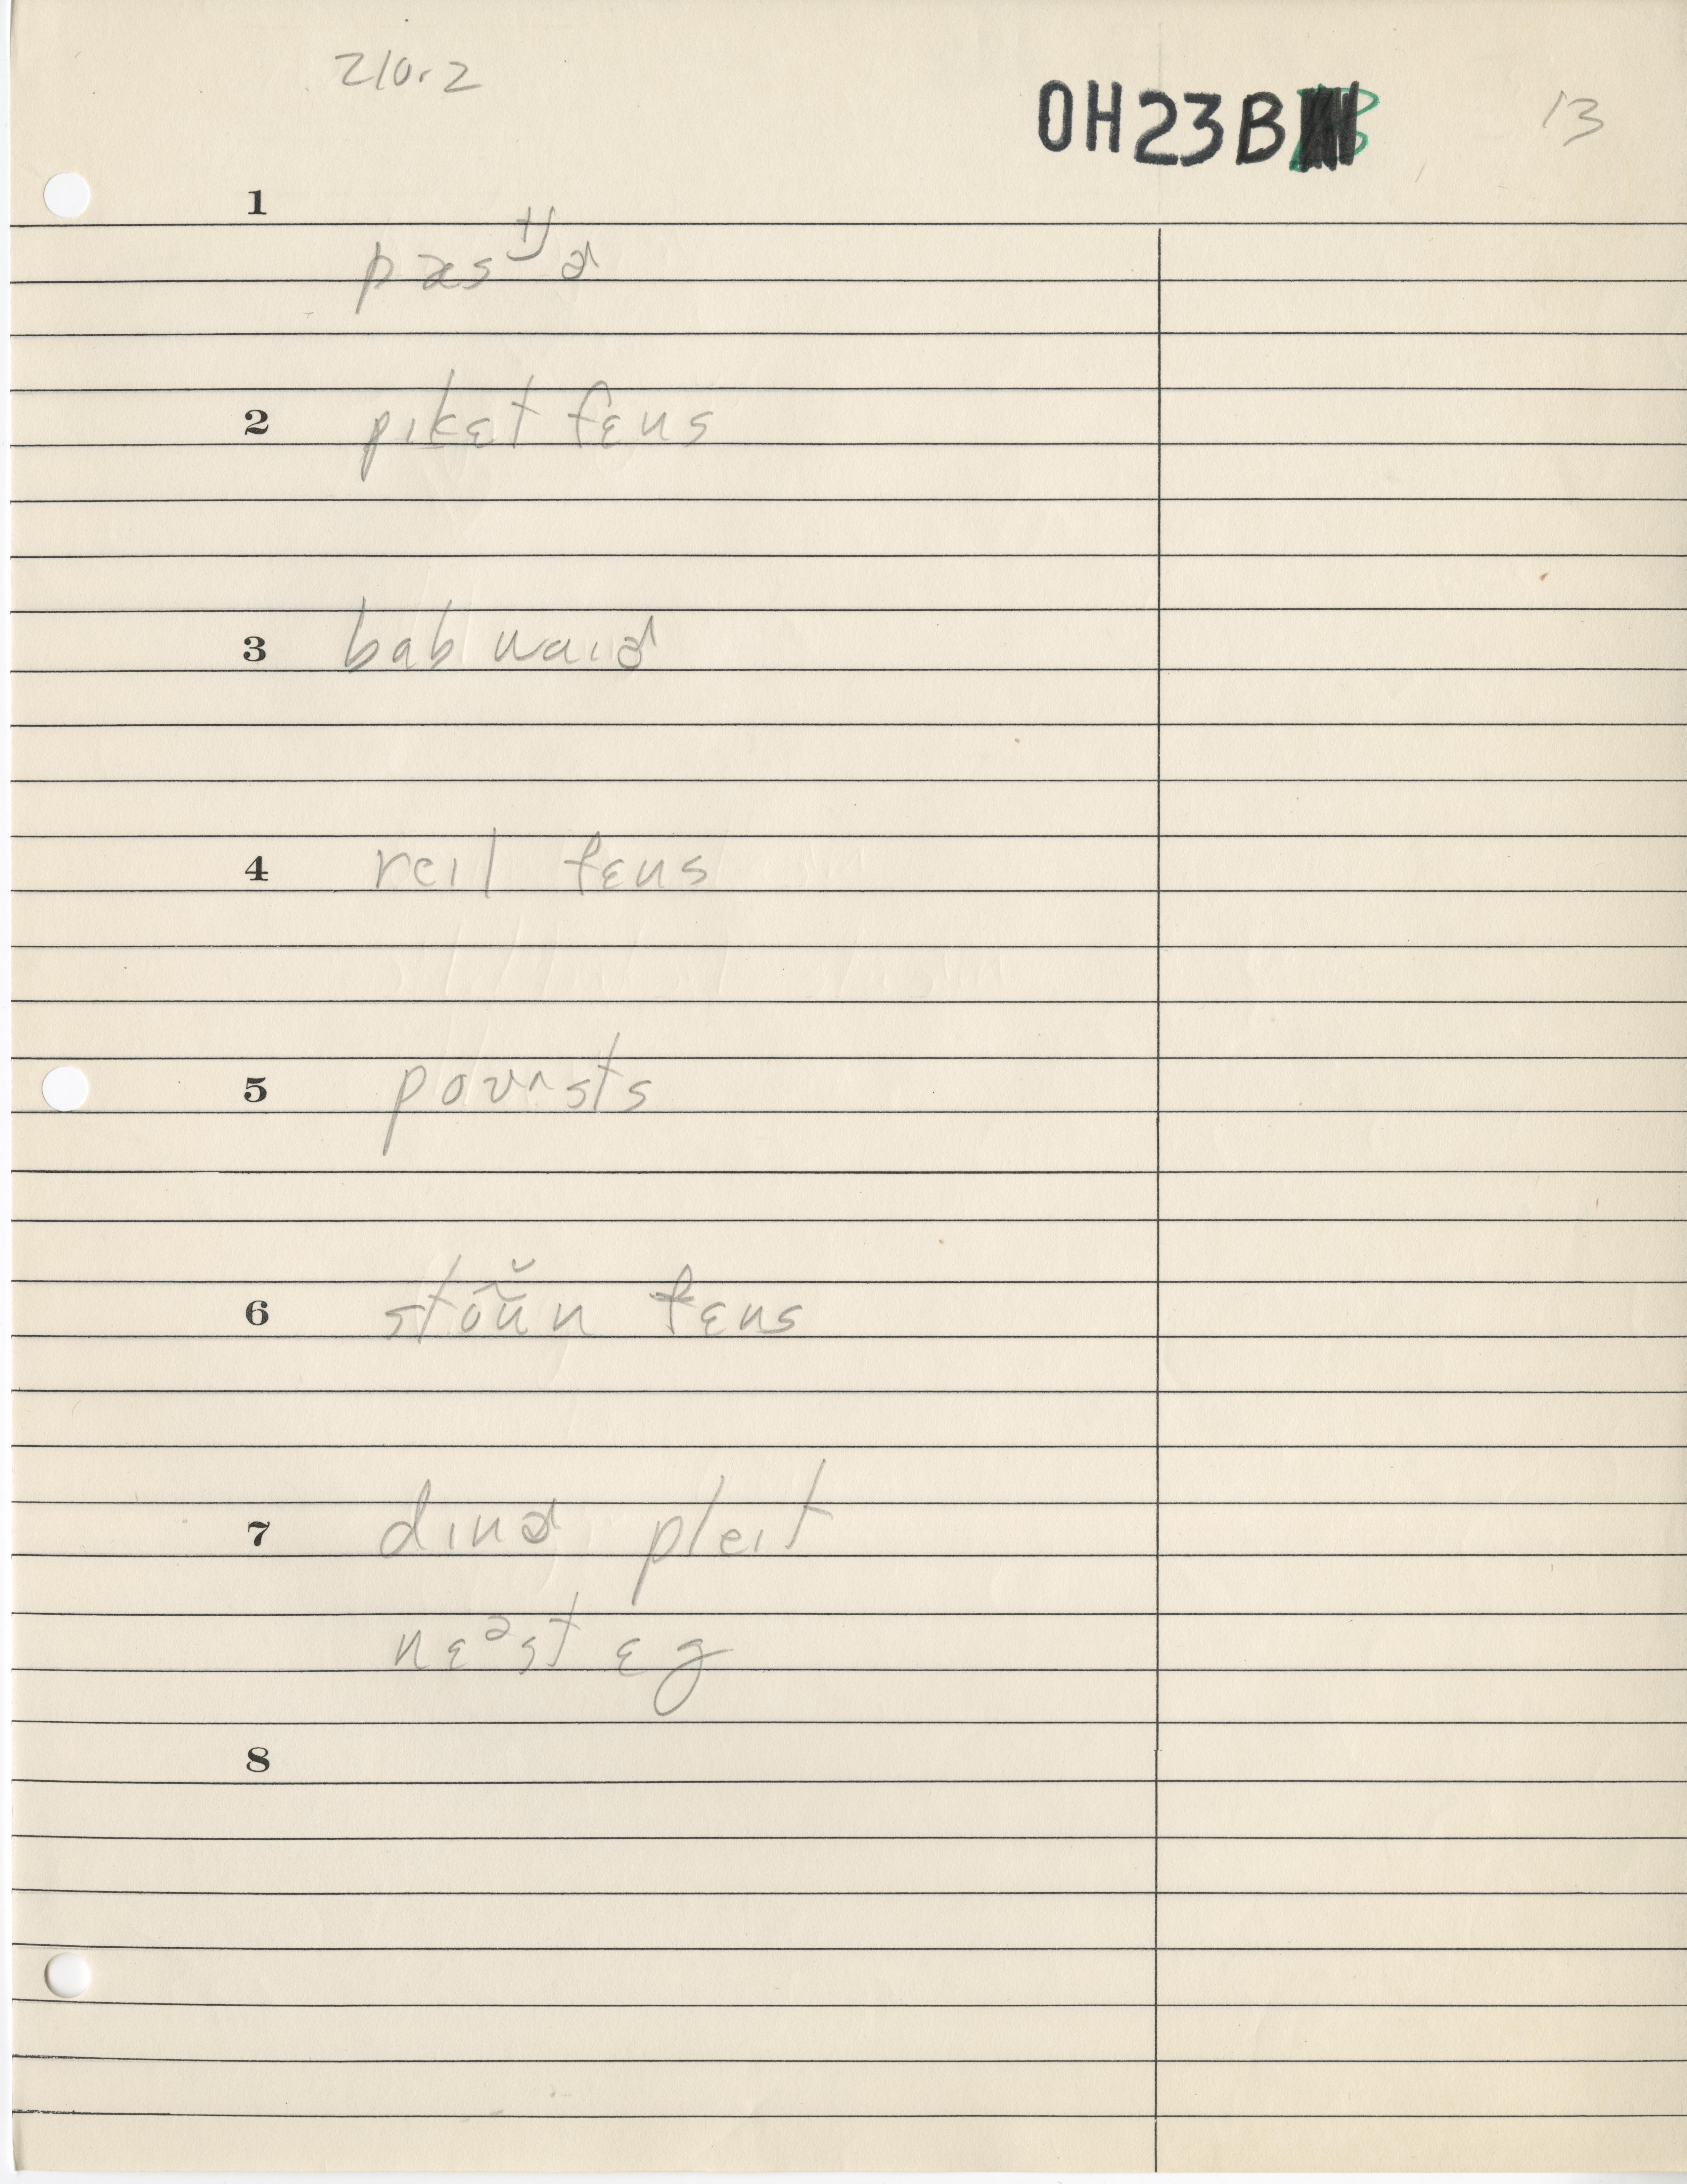 210.2
OH23B
13
1
pæsᵗʃɚ
2 pɪkɛt fɛns
3 bab waɪɚ
4 reɪl fɛns
5 poʊʌsts
6 stõʊ̃̆n fɛns
7 dɪnɚ pleɪt
nɛᵊst ɛg
8